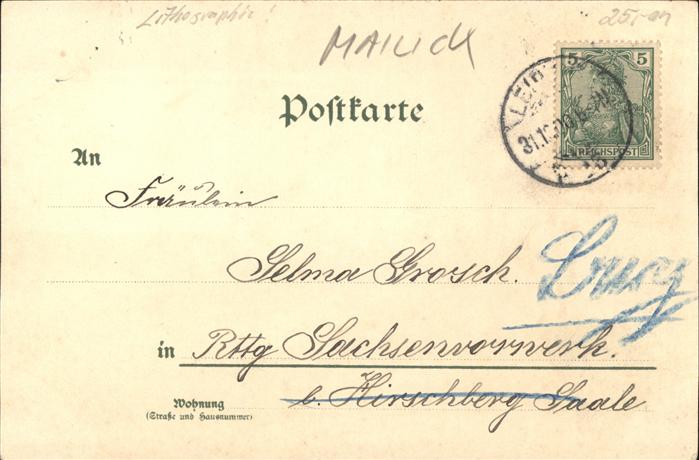 Lithographie! 25.-
MAILICK
5 5
LEIP
31.12.00
REICHSPOST
Postkarte
An
Fräulein
Selma Grosch.
in Rttg Sachsenvorwerk.
Wohnung b. Hirschberg Saale
(Straße und Hausnummer)